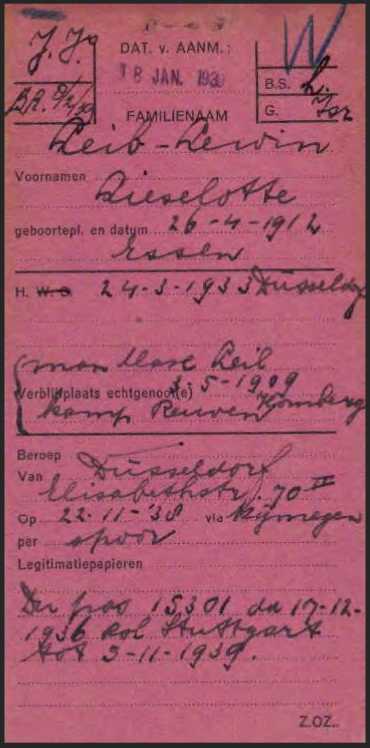 J. J.
DAT. v. AANM.:
18 JAN. 1939
W
B.S. h.
G. Isr
FAMILIENAAM
Leib-Lewin
Voornamen
Lieselotte
geboortepl. en datum 26-4-1912
Essen
H. W. G. 24-3-1933 Düsseldorf
man Max Leib
Verblijfplaats echtgenoot(e) 3-5-1909
kamp Reuver
Beroep
Van Düsseldorf
Elisabethstr. 70 II
Op 22-11-'38 via Nijmegen
per spoor
Legitimatiepapieren
Du pas 15301 dd 17-12-
1936 pol Stuttgart
tot 9-11-1939.
Z.OZ.